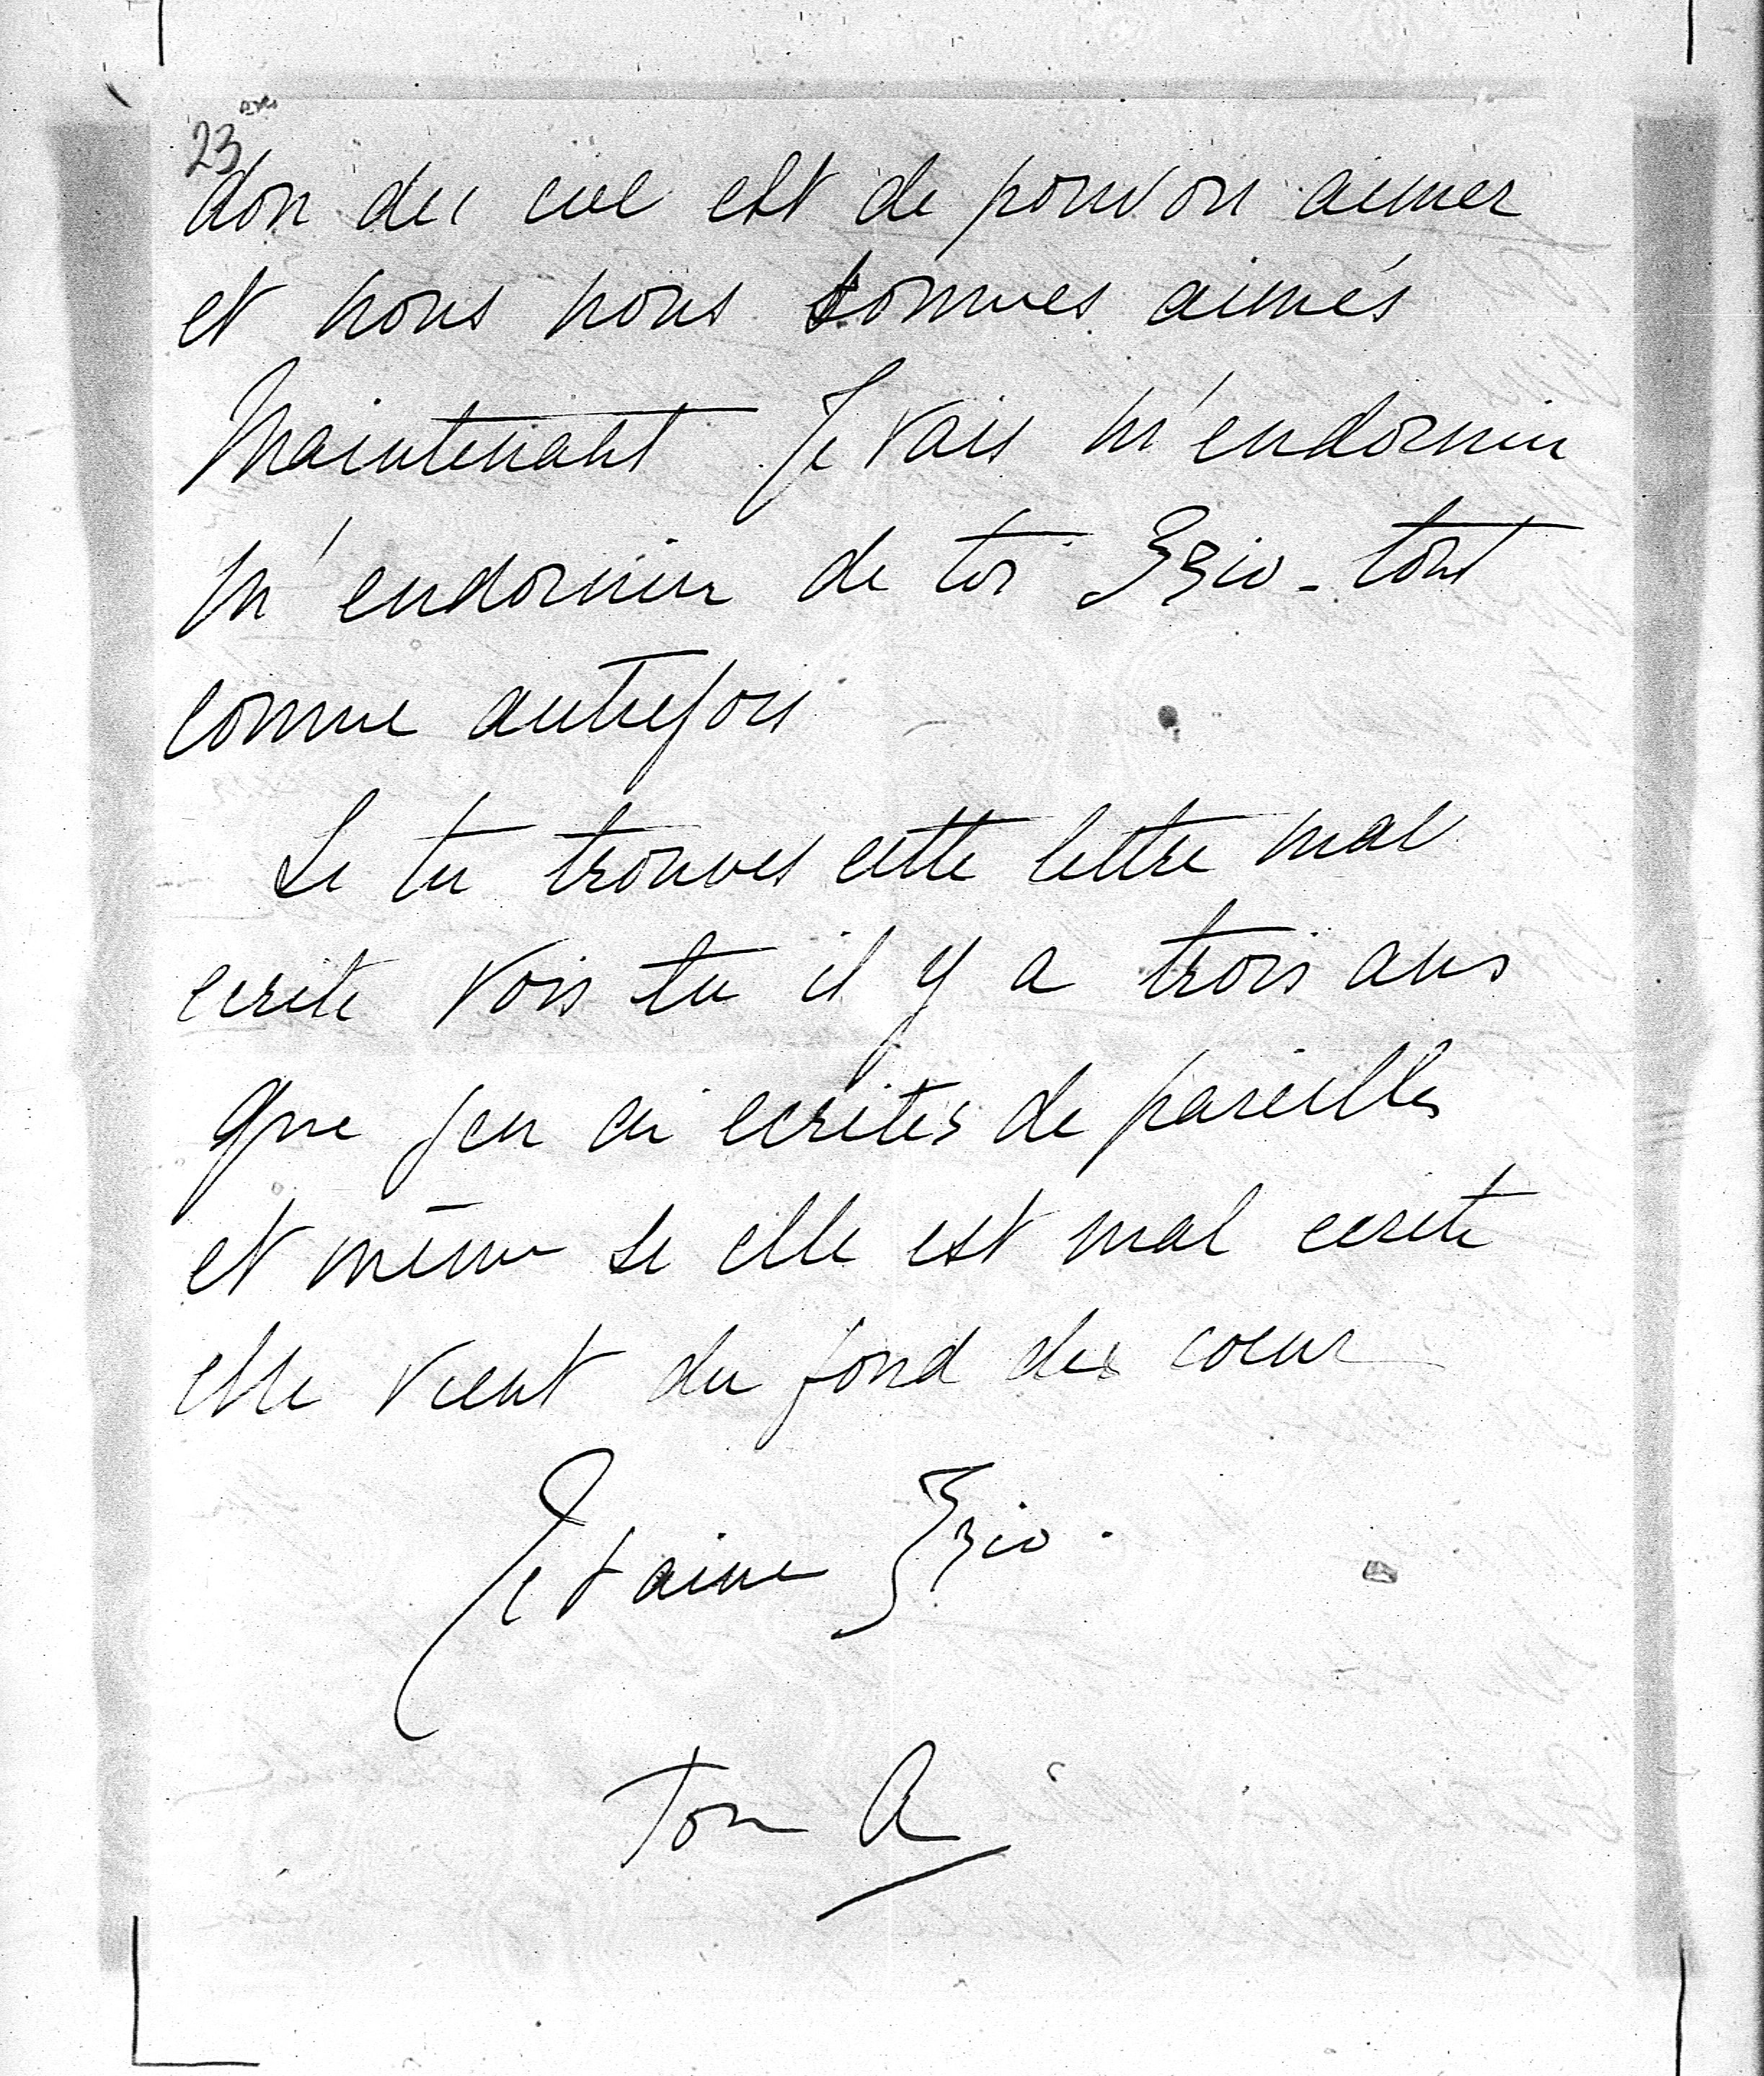 23
don du ciel est de pouvoir aimer
et nous nous sommes aimés
Maintenant Je vais m'endormir
m'endormir de toi Ezio - tout
comme autrefois
Si tu trouves cette lettre mal
ecrite vois tu il y a trois ans
que j'en ai ecrites de pareilles
et même si elle est mal ecrite
elle vient du fond du coeur
Je t'aime Ezio.
Ton A